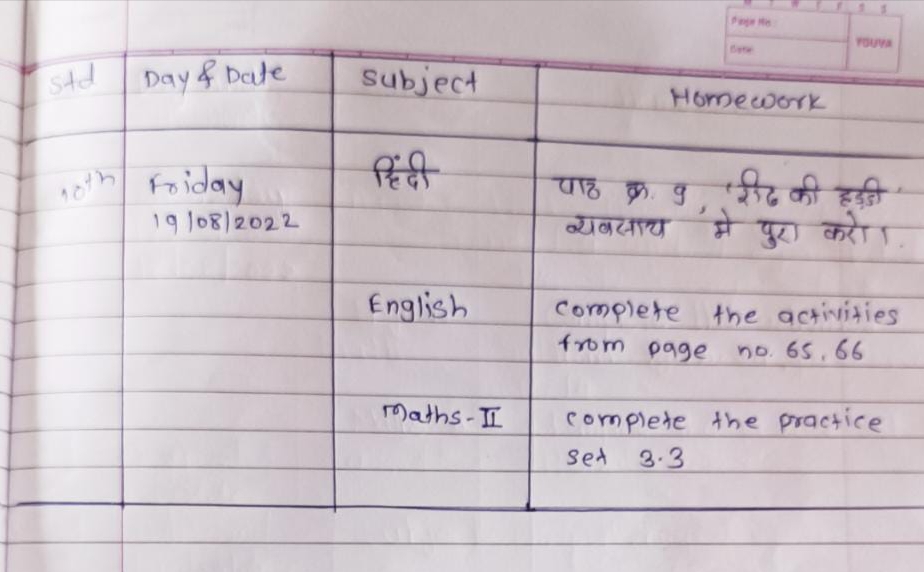 Page No:
Date:
YOUVA
Std Day & Date Subject Homework
10th Friday हिंदी पाठ क्र. 9, 'रीढ की हड्डी'
19/08/2022 व्यवसाय मे पुरा करो।.
English complete the activities
from page no. 65, 66
Maths-II complete the practice
set 3.3